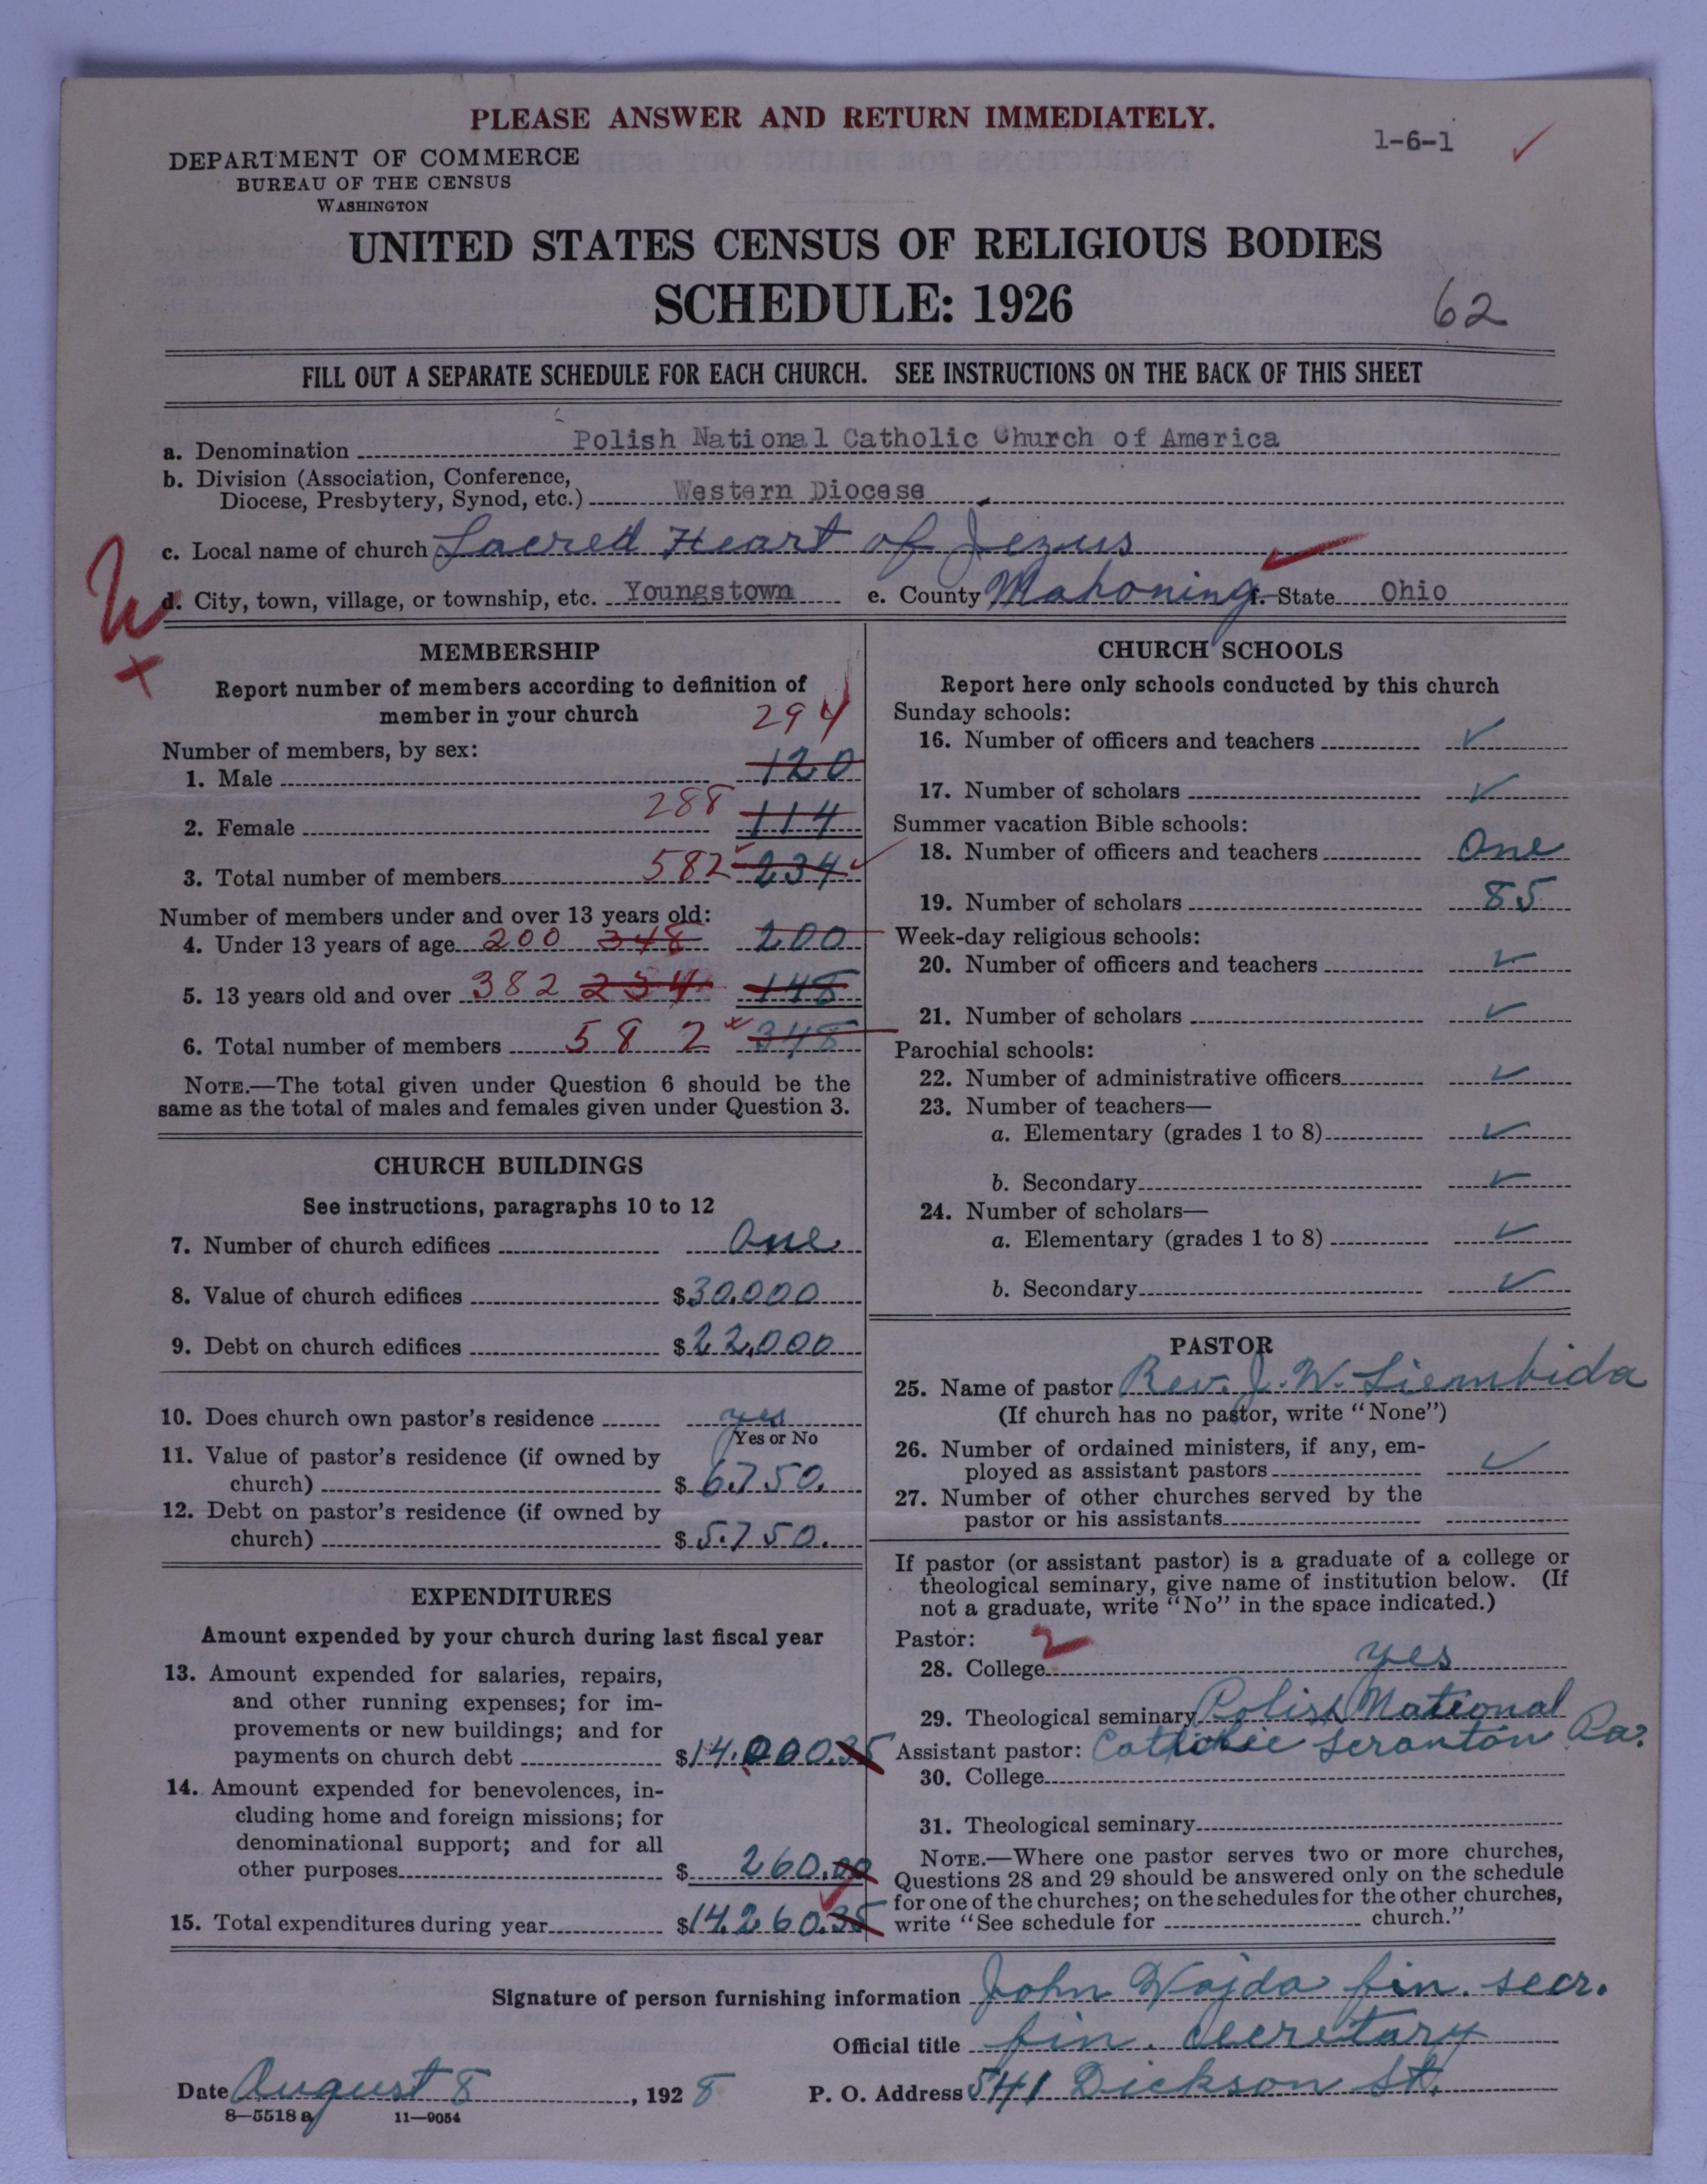 PLEASE ANSWER AND RETURN IMMEDIATELY.
1-6-1
DEPARTMENT OF COMMERCE
BUREAU OF THE CENSUS
WASHINGTON
UNITED STATES CENSUS OF RELIGIOUS BODIES
SCHEDULE: 1926
62
FILL OUT A SEPARATE SCHEDULE FOR EACH CHURCH. SEE INSTRUCTIONS ON THE BACK OF THIS SHEET
a. Denomination Polish National Catholic Church of America
b. Division (Association, Conference,
Diocese, Presbytery, Synod, etc.) Western Diocese
c. Local name of church Sacred Heart of Jezus
d. City, town, village, or township, etc. Youngstown e. County Mahoning f. State Ohio
MEMBERSHIP
Report number of members according to definition of
member in your church
294
Number of members, by sex:
1. Male 120
2. Female 288 114
3. Total number of members 582 234
Number of members under and over 13 years old:
4. Under 13 years of age 200 348 200
5. 13 years old and over 382 234 148
6. Total number of members 582 348
NOTE.—The total given under Question 6 should be the
same as the total of males and females given under Question 3.
CHURCH BUILDINGS
See instructions, paragraphs 10 to 12
7. Number of church edifices One
8. Value of church edifices $30.000
9. Debt on church edifices $22,000
10. Does church own pastor's residence yes
Yes or No
11. Value of pastor's residence (if owned by
church) $6.750.
12. Debt on pastor's residence (if owned by
church) $5.750.
EXPENDITURES
Amount expended by your church during last fiscal year
13. Amount expended for salaries, repairs,
and other running expenses; for im-
provements or new buildings; and for
payments on church debt $14.000.35
14. Amount expended for benevolences, in-
cluding home and foreign missions; for
denominational support; and for all
other purposes $260.00
15. Total expenditures during year $14.260.35
CHURCH SCHOOLS
Report here only schools conducted by this church
Sunday schools:
16. Number of officers and teachers ✓
17. Number of scholars ✓
Summer vacation Bible schools:
18. Number of officers and teachers One
19. Number of scholars 85
Week-day religious schools:
20. Number of officers and teachers ✓
21. Number of scholars ✓
Parochial schools:
22. Number of administrative officers ✓
23. Number of teachers—
a. Elementary (grades 1 to 8) ✓
b. Secondary ✓
24. Number of scholars—
a. Elementary (grades 1 to 8) ✓
b. Secondary ✓
PASTOR
25. Name of pastor Rev. J. W.
(If church has no pastor, write "None")
26. Number of ordained ministers, if any, em-
ployed as assistant pastors ✓
27. Number of other churches served by the
pastor or his assistants
If pastor (or assistant pastor) is a graduate of a college or
theological seminary, give name of institution below. (If
not a graduate, write "No" in the space indicated.)
Pastor: 2
28. College yes
29. Theological seminary Polish National
Assistant pastor: Catholic Scranton Pa.
30. College
31. Theological seminary
NOTE.—Where one pastor serves two or more churches,
Questions 28 and 29 should be answered only on the schedule
for one of the churches; on the schedules for the other churches,
write "See schedule for church."
Signature of person furnishing information John Wojda fin. secr.
Official title fin. secretary
Date August 8, 1928 P. O. Address 541 Dickson St.
8—5518 a 11—9054